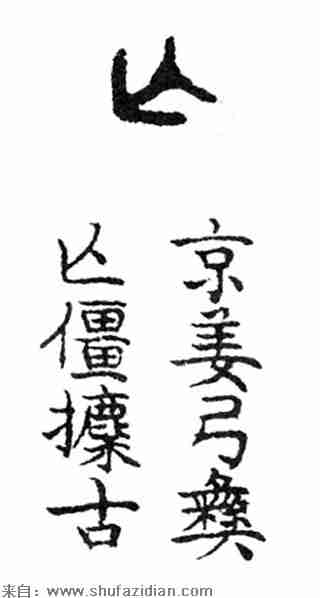 亾
京姜弓彝
亾僵攈古
来自：www.shufazidian.com